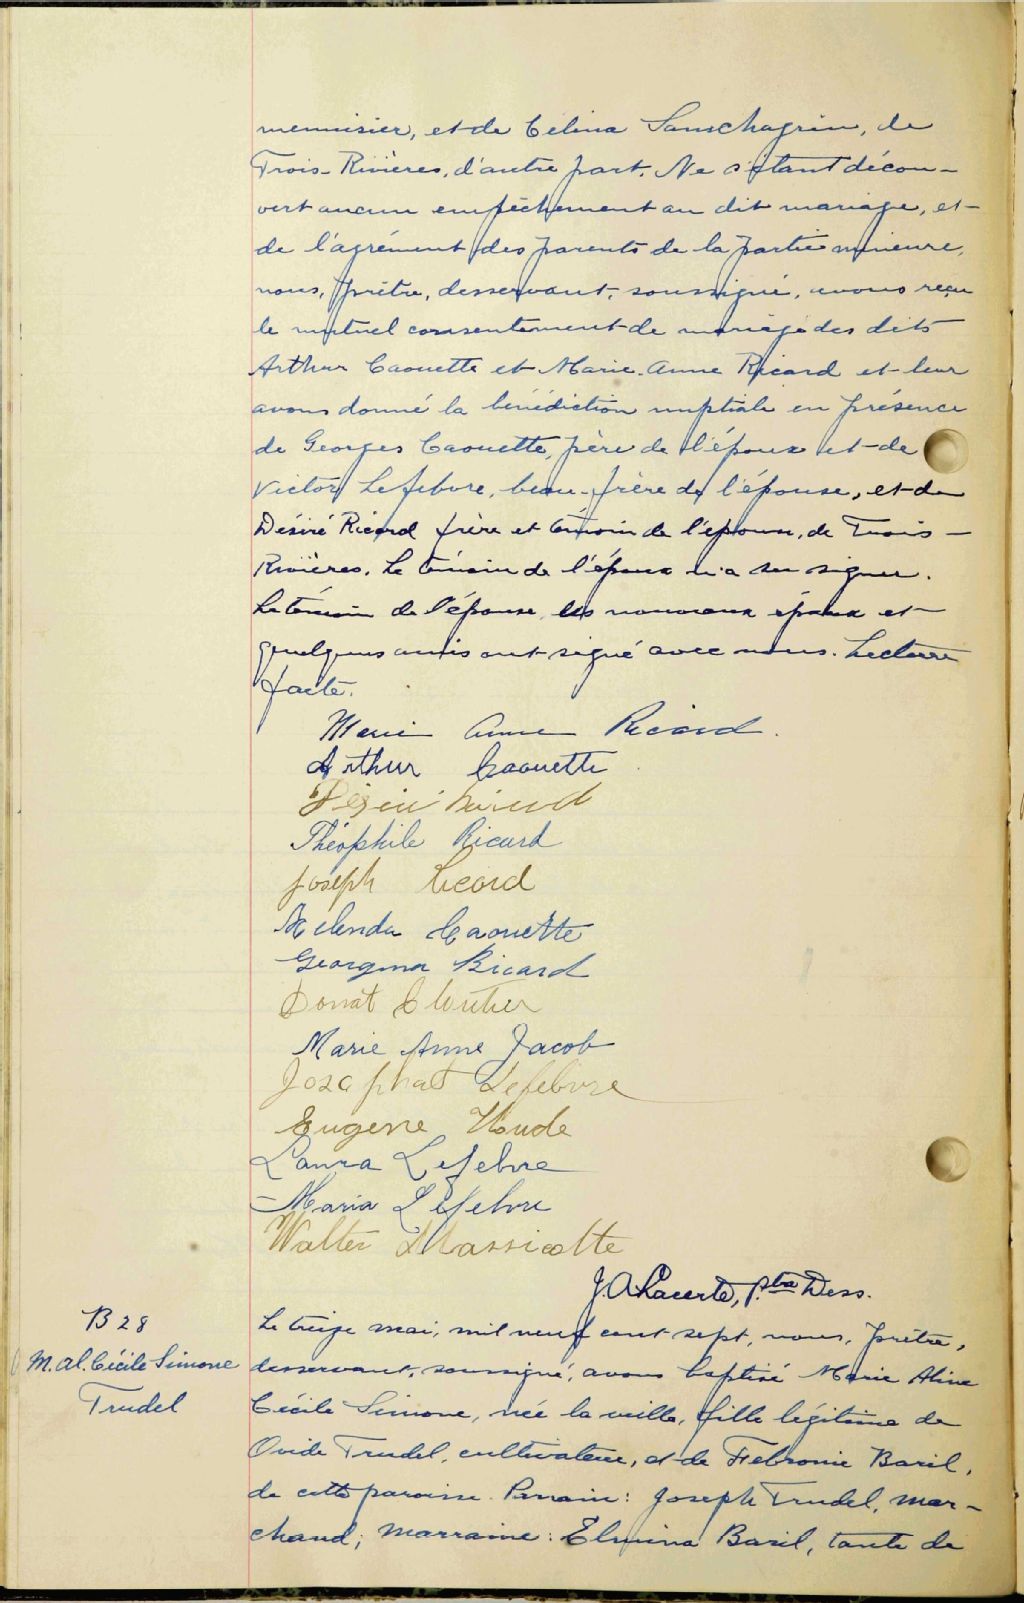 menuisier, et de Célina Sanschagrin, de
Trois-Rivières, d'autre part. Ne s'étant décou-
vert aucun empêchement au dit mariage, et
de l'agrément des parents de la partie mineure,
nous, prêtre, desservant, soussigné, avons reçu
le mutuel consentement de mariage des dits
Arthur Caouette et Marie-Anne Ricard et leur
avons donné la bénédiction nuptiale en présence
de Georges Caouette, père de l'époux et de
Victor Lefebvre, beau-frère de l'épouse, et de
Désiré Ricard frère et témoin de l'épouse, de Trois-
Rivières. Le témoin de l'époux n'a su signer.
Le témoin de l'épouse, les nouveaux époux et
quelques amis ont signé avec nous. Lecture
faite.
Marie Anne Ricard.
Arthur Caouette
Désiré Ricard
Théophile Ricard
Joseph Ricard
Caouette
Georgina Ricard
Donat Cloutier
Marie Anne Jacob
Josaphat Lefebvre
Eugene Houde
Laura Lefebvre
Maria Lefebvre
Walter Massicotte
J. A. Lacerte, ptre Dess.
B 28
M. Al. Cécile Simone
Trudel
Le treize mai, mil neuf cent sept, nous, prêtre,
desservant, soussigné, avons baptisé Marie Aline
Cécile Simone, née la veille, fille légitime de
Ovide Trudel, cultivateur, et de Febronie Baril,
de cette paroisse. Parrain: Joseph Trudel, mar-
chand; marraine: Elmina Baril, tante de